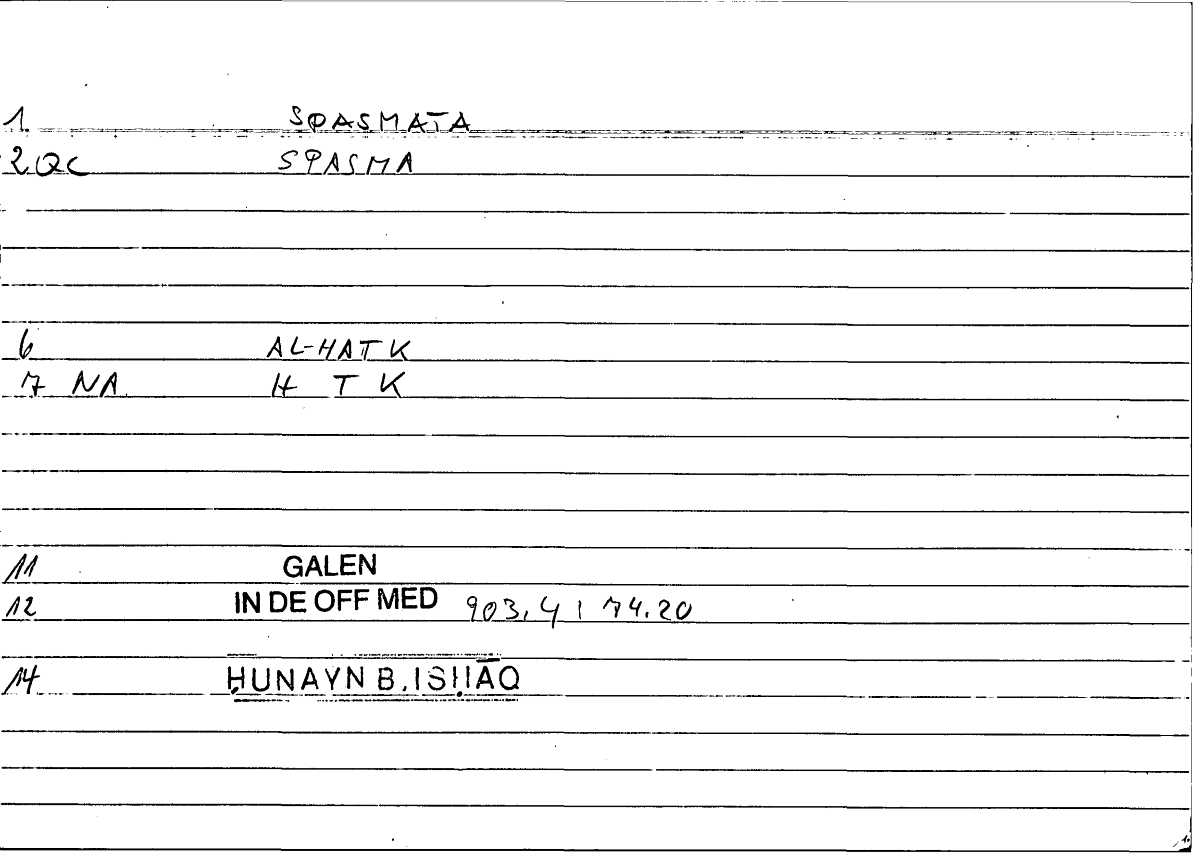 1. SPASMATA
2QC SPASMA
6 AL-HATK
7 NA H T K
11 GALEN
12 IN DE OFF MED 903,4 | 74.20
14 ḤUNAYN B. ISḤĀQ